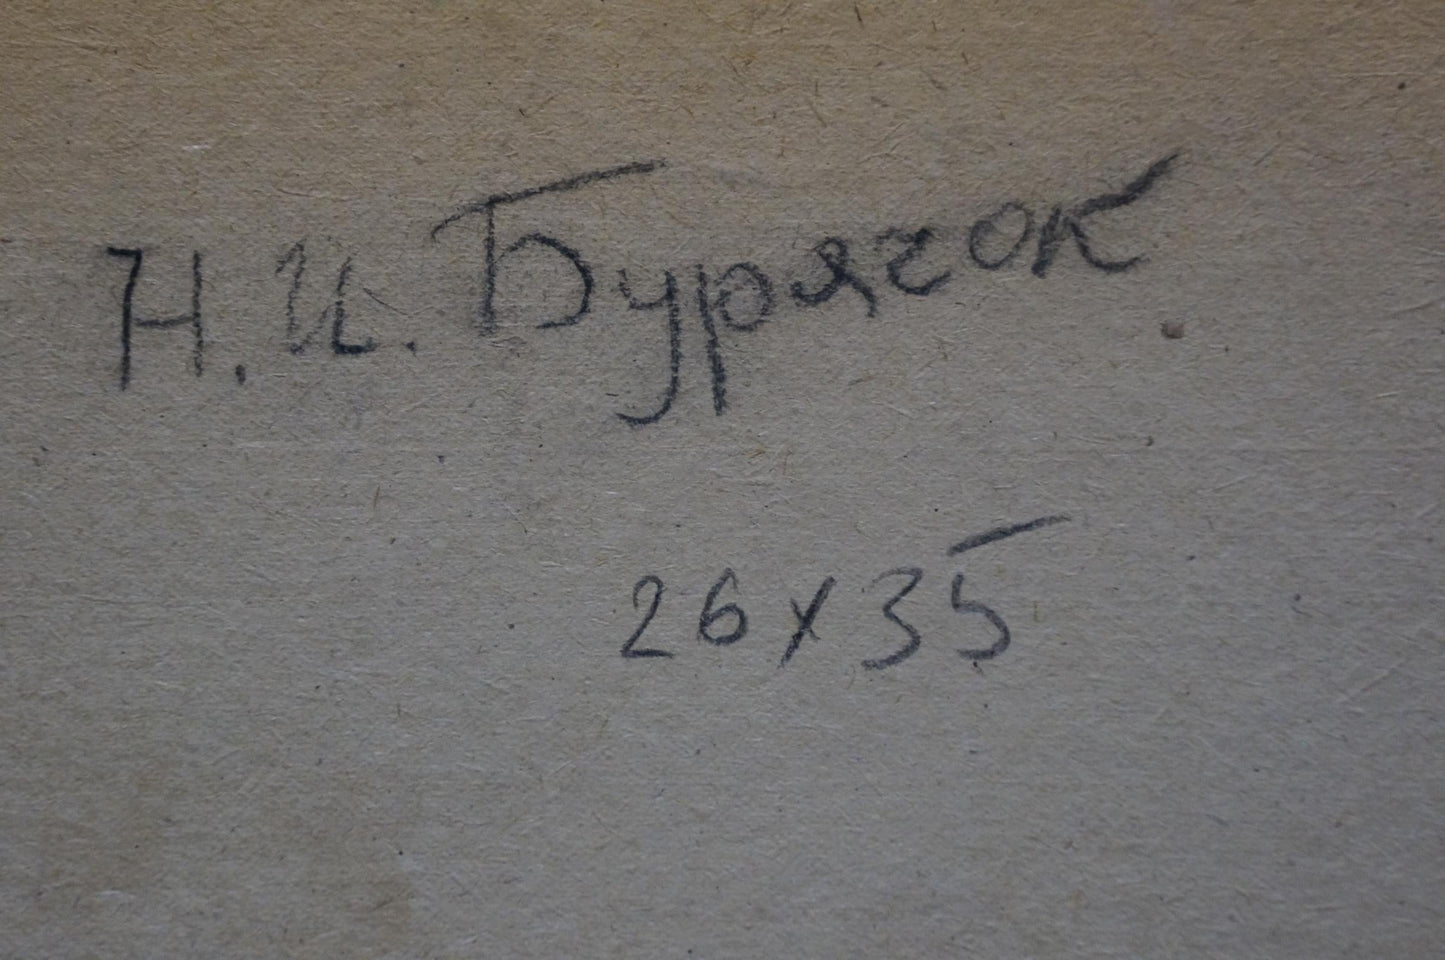 Н. И. Бурячок
26 х 35